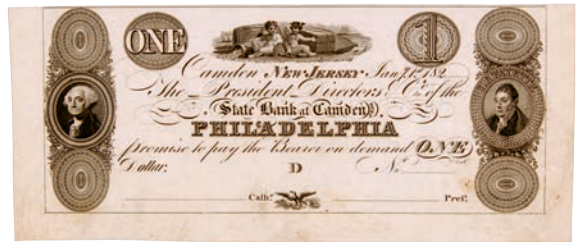 ONE 1
Camden NEW-JERSEY Jan.y 1.st 182
The President Directors & Co. of the
State Bank at Camden,
PHILADELPHIA
promise to pay the Bearer on demand ONE
Dollar. D No.
Cash.r Pres.t